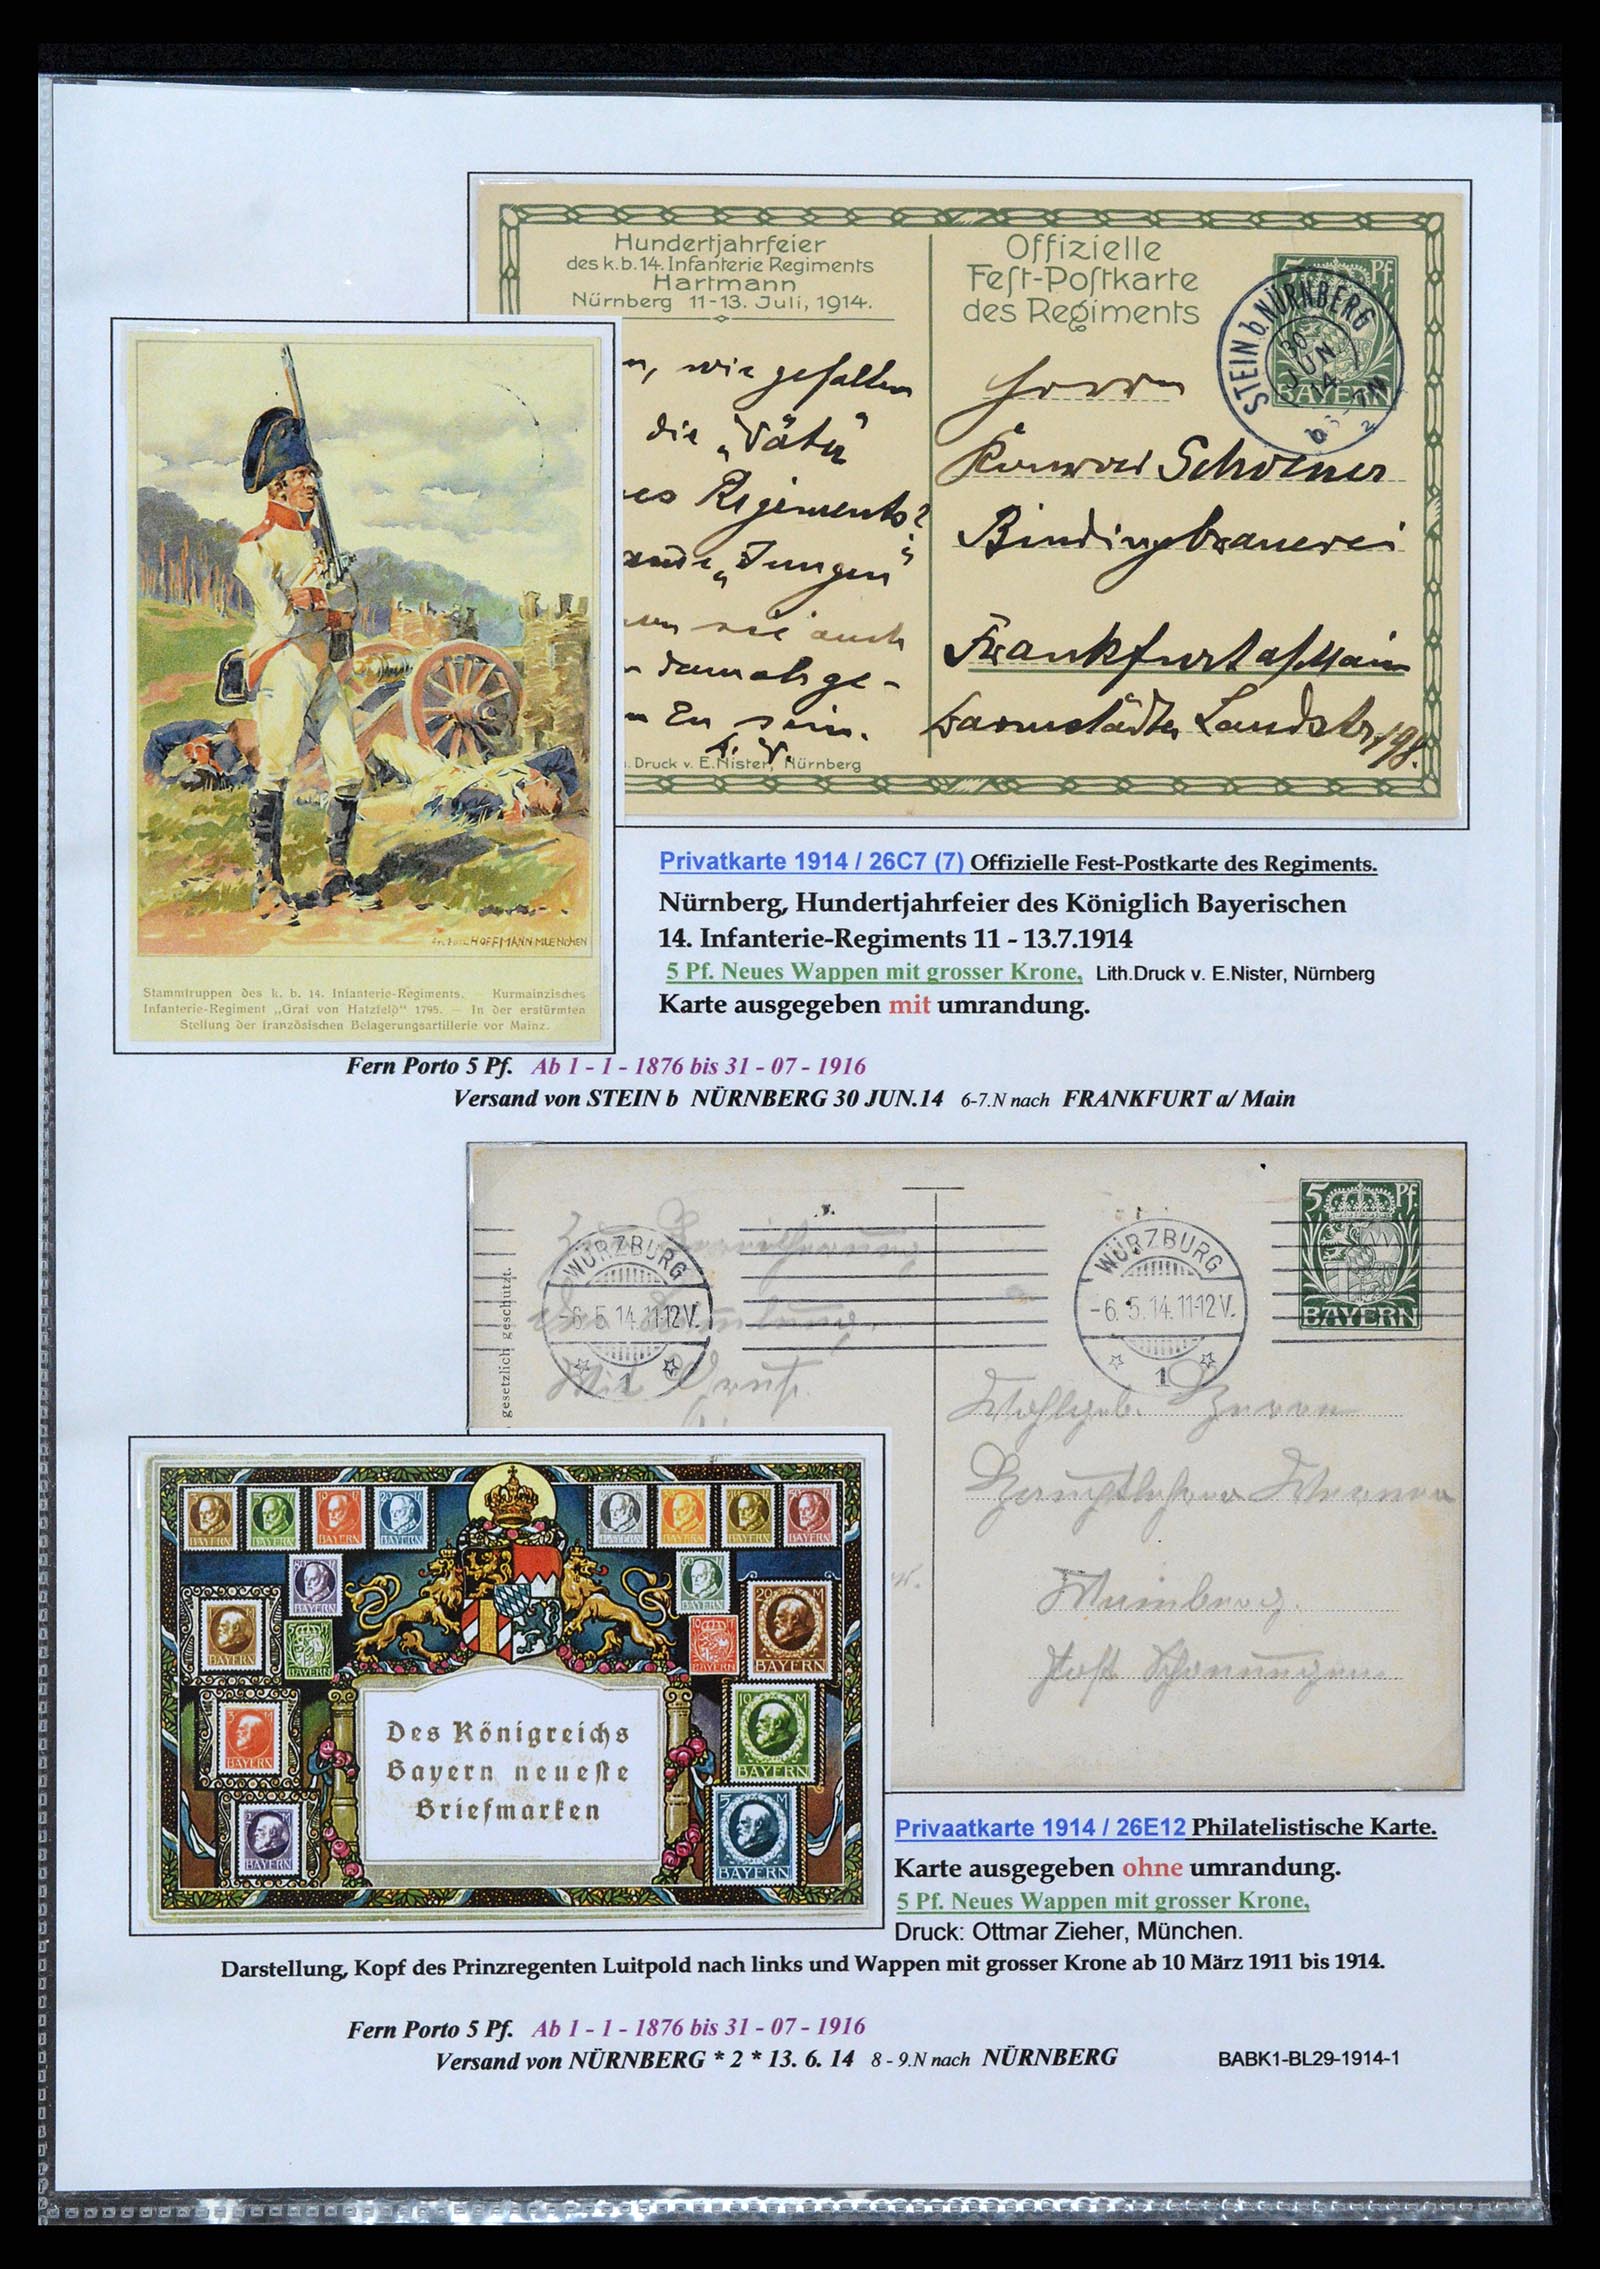 Hundertjahrfeier
des k. b. 14. Infanterie Regiments
Hartmann
Nürnberg 11-13. Juli, 1914.
Offizielle
Fest-Postkarte
des Regiments
5 Pf
BAYERN
STEIN b. NÜRNBERG
30
JUN
14
wie gefallen
die „Väter"
Regiments?
„Jungen"
sie auch
damals ge-
sein.
Druck v. E. Nister, Nürnberg
Herrn
Schreiner
Bindingbrauerei
Frankfurt a/Main
Darmstädter Landstr. 198.
HOFFMANN MUENCHEN
Stammtruppen des k. b. 14. Infanterie-Regiments. — Kurmainzisches
Infanterie-Regiment „Graf von Hatzfeld" 1795. — In der erstürmten
Stellung der französischen Belagerungsartillerie vor Mainz.
Privatkarte 1914 / 26C7 (7) Offizielle Fest-Postkarte des Regiments.
Nürnberg, Hundertjahrfeier des Königlich Bayerischen
14. Infanterie-Regiments 11 - 13.7.1914
5 Pf. Neues Wappen mit grosser Krone, Lith.Druck v. E.Nister, Nürnberg
Karte ausgegeben mit umrandung.
Fern Porto 5 Pf. Ab 1 - 1 - 1876 bis 31 - 07 - 1916
Versand von STEIN b NÜRNBERG 30 JUN.14 6-7.N nach FRANKFURT a/ Main
gesetzlich geschützt.
WÜRZBURG
-6.5.14.11-12V.
1
WÜRZBURG
-6.5.14.11-12V.
1
5 Pf.
BAYERN
Wohlgeb. Herrn
Hauptlehrer
Mainberg.
Post Schonungen
Des Königreichs
Bayern neueste
Briefmarken
Privaatkarte 1914 / 26E12 Philatelistische Karte.
Karte ausgegeben ohne umrandung.
5 Pf. Neues Wappen mit grosser Krone,
Druck: Ottmar Zieher, München.
Darstellung, Kopf des Prinzregenten Luitpold nach links und Wappen mit grosser Krone ab 10 März 1911 bis 1914.
Fern Porto 5 Pf. Ab 1 - 1 - 1876 bis 31 - 07 - 1916
Versand von NÜRNBERG * 2 * 13. 6. 14 8 - 9.N nach NÜRNBERG BABK1-BL29-1914-1